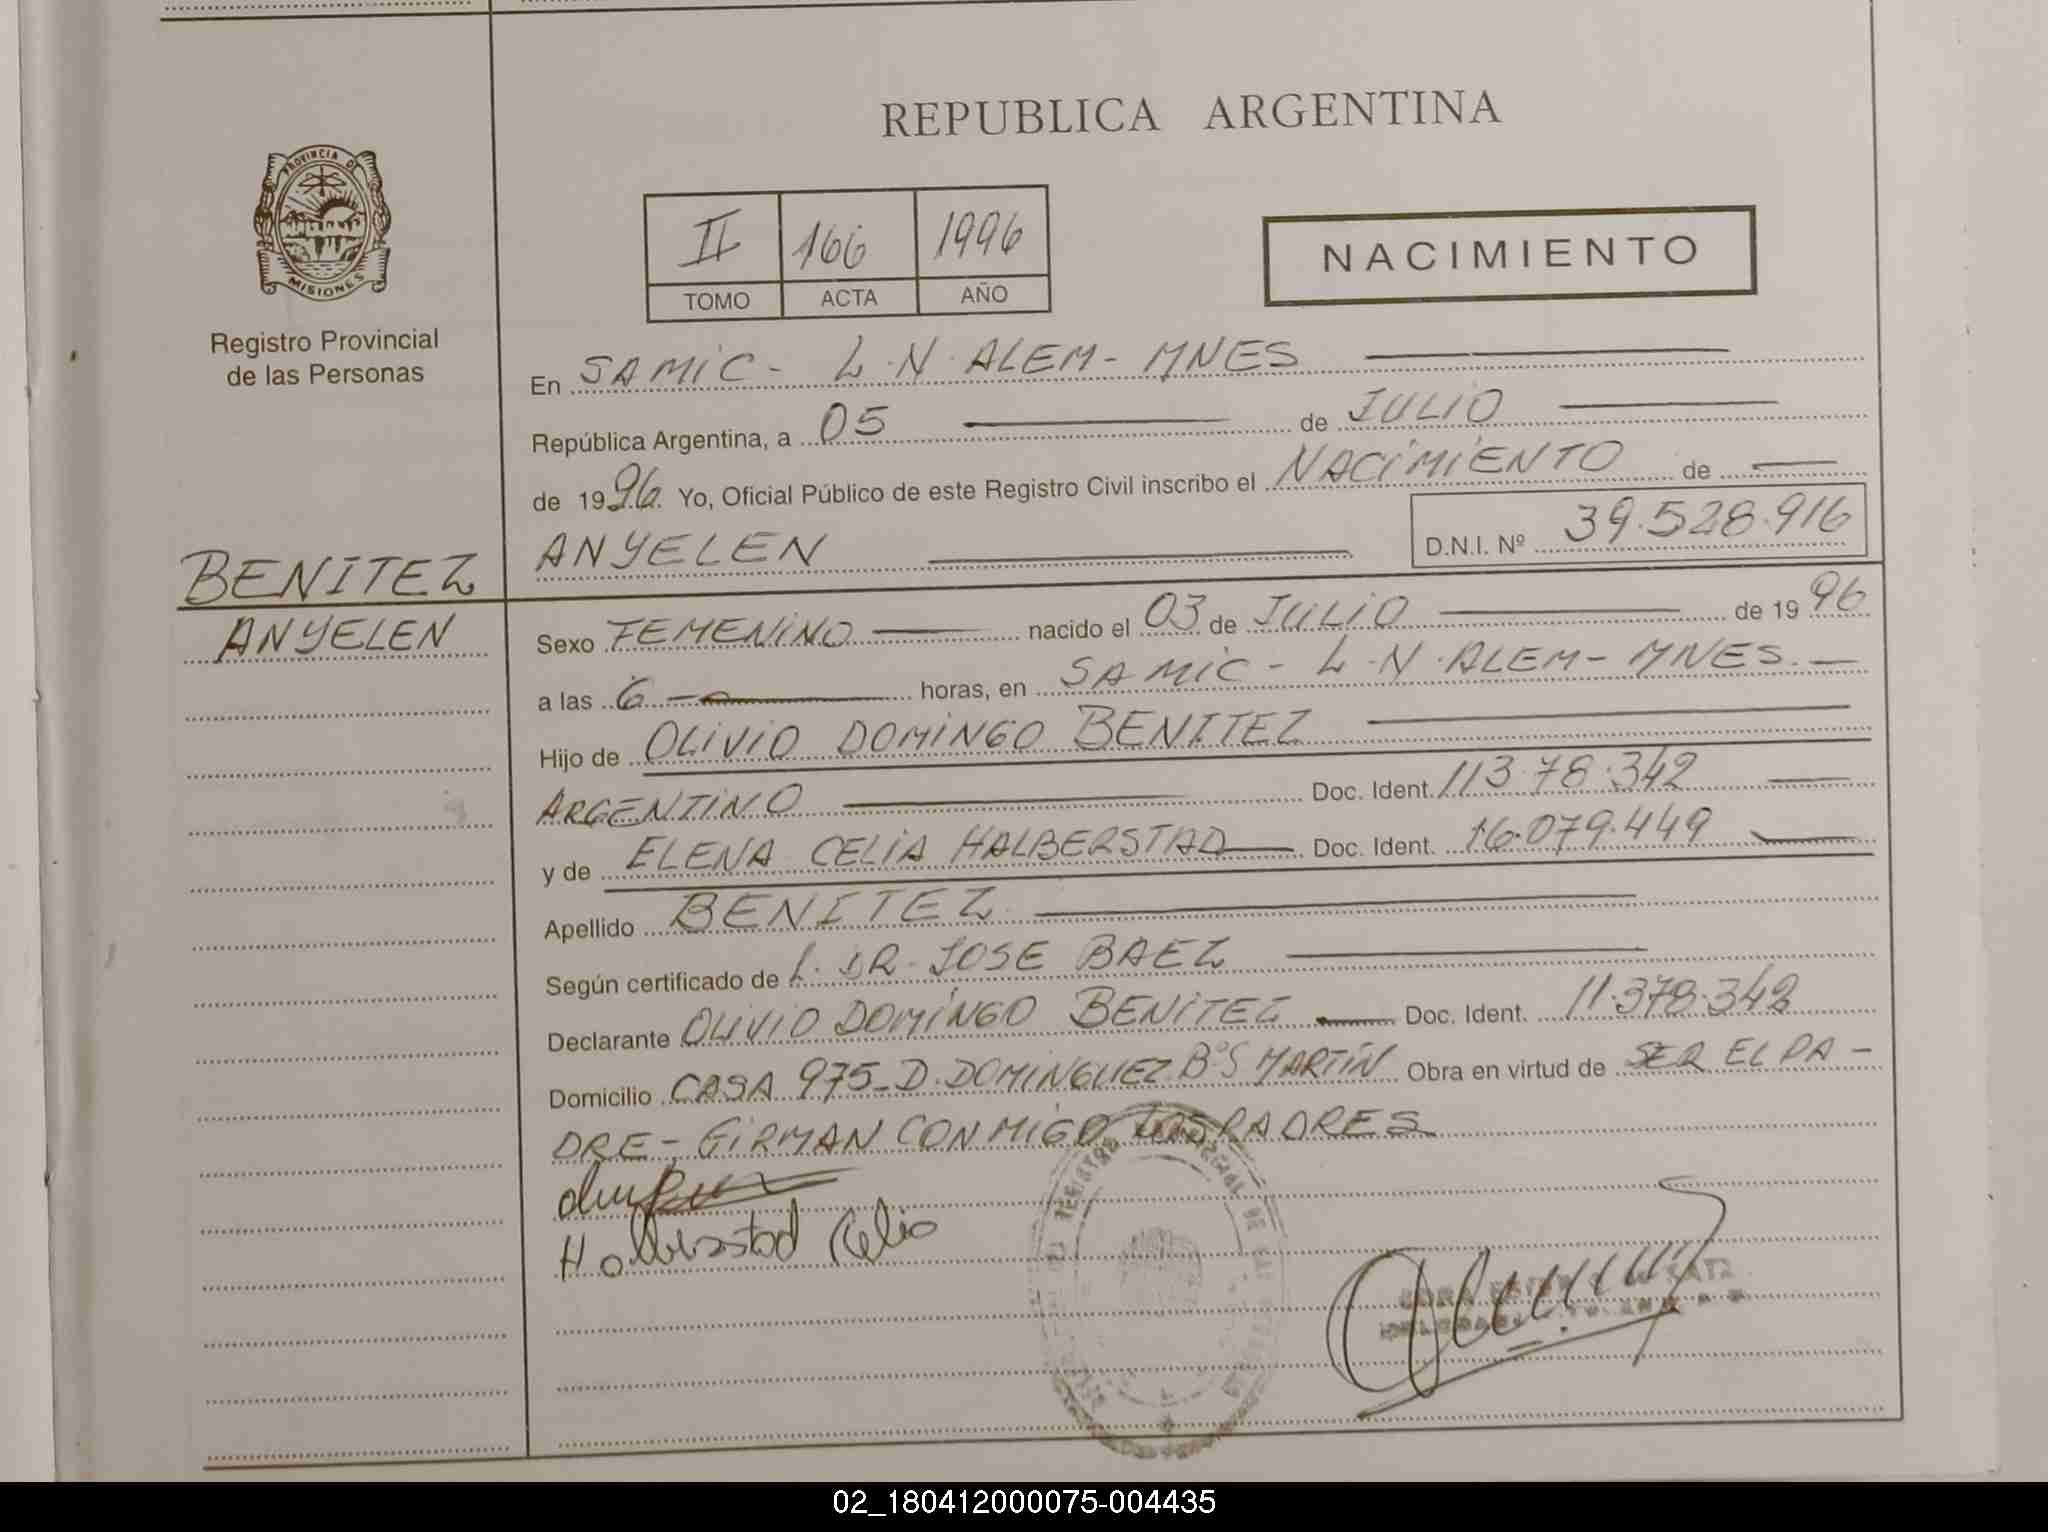 REPUBLICA ARGENTINA
PROVINCIA DE
MISIONES
Registro Provincial
de las Personas
II 166 1996
TOMO ACTA AÑO
NACIMIENTO
En SAMIC - L.N. ALEM - MNES
República Argentina, a 05 de JULIO
de 1996. Yo, Oficial Público de este Registro Civil inscribo el NACIMIENTO de
ANYELEN D.N.I. Nº 39.528.916
BENITEZ
ANYELEN
Sexo FEMENINO nacido el 03 de JULIO de 1996
a las 6 horas, en SAMIC - L.N. ALEM - MNES.
Hijo de OLIVIO DOMINGO BENITEZ
ARGENTINO Doc. Ident. 113.78.342
y de ELENA CELIA HALBERSTAD Doc. Ident. 16.079.449
Apellido BENITEZ
Según certificado de DR. JOSE BAEZ
Declarante OLIVIO DOMINGO BENITEZ Doc. Ident. 11.378.342
Domicilio CASA 975_D. DOMINGUEZ Bº S MARTÍN Obra en virtud de SER EL PA-
DRE - FIRMAN CONMIGO LOS PADRES
Halberstad Celia
02_180412000075-004435